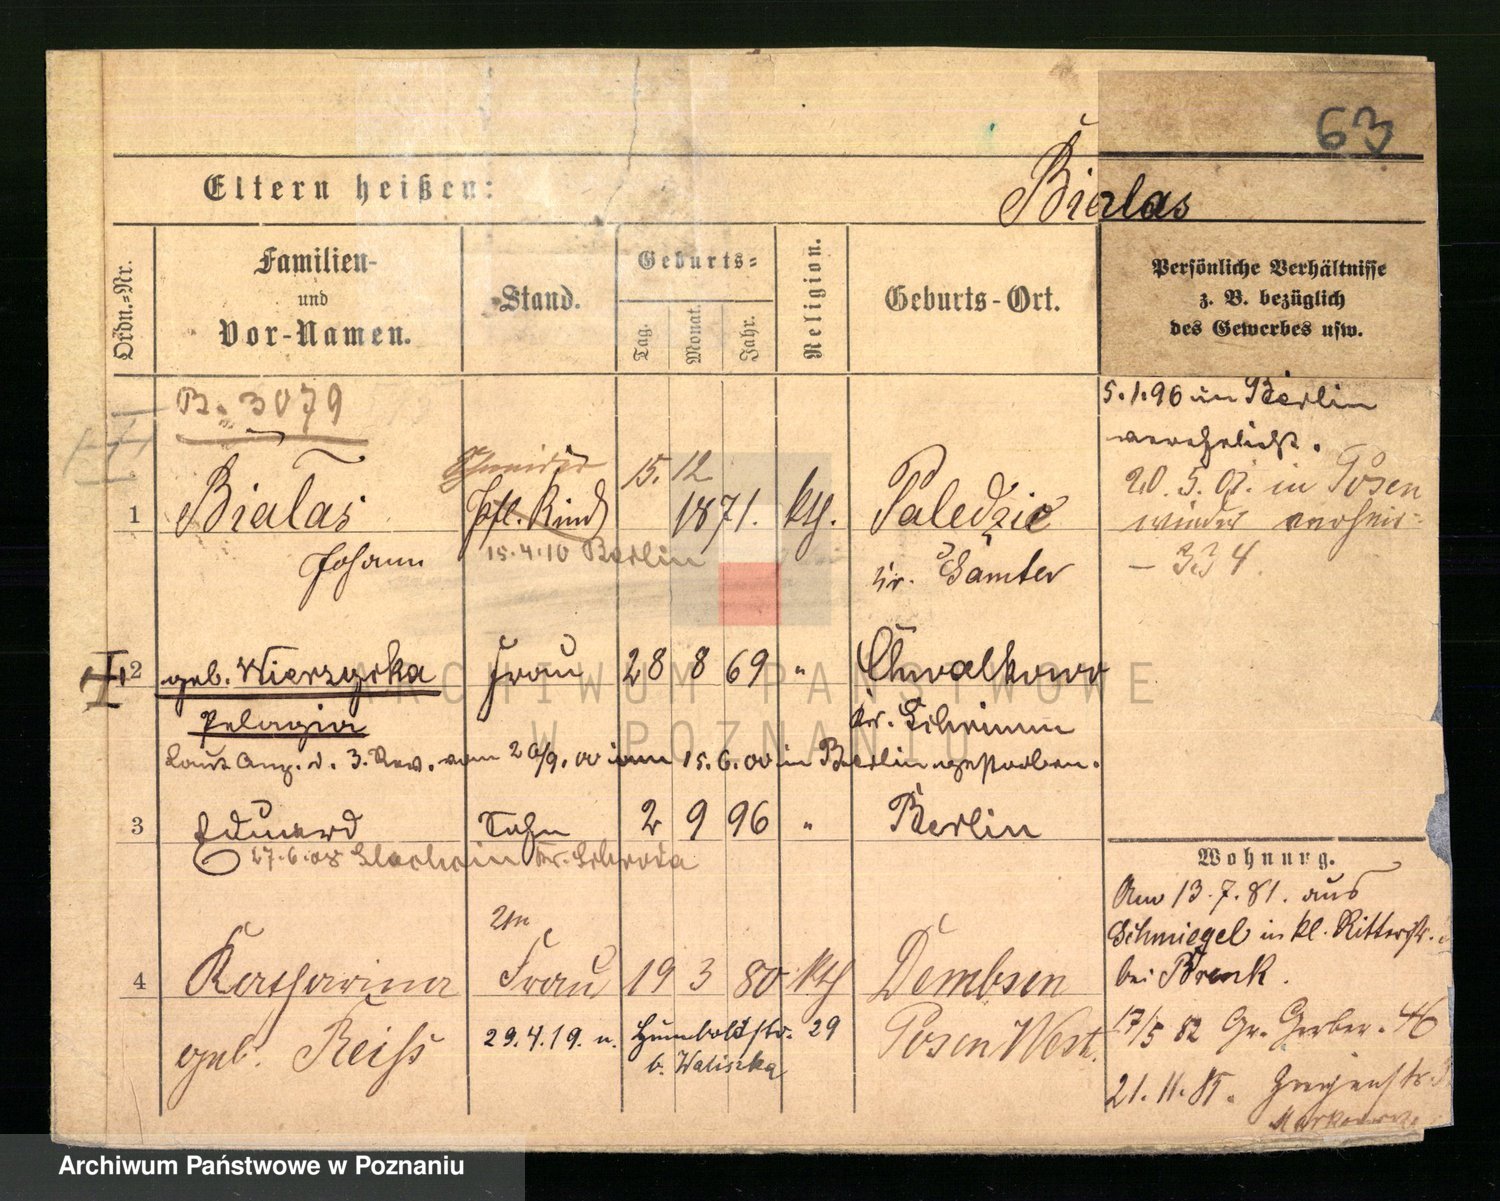 63
Eltern heißen:
Bialas
Ordn.-Nr.
Familien-
und
Vor-Namen.
Stand.
Geburts-
Tag.
Monat.
Jahr.
Religion.
Geburts-Ort.
Persönliche Verhältnisse
z. B. bezüglich
des Gewerbes usw.
B. 3079
5.1.96 in Berlin
verehelicht.
20. 5. 07. in Posen
wieder
Schneider
1 Bialas Pfl. Kind 15. 12 1871. kth. Paledzie
Johann 15.4.10 Berlin Kr. Samter
2 geb. Wierzycka Frau 28 8 69 " Chwalkowo
Pelagia Kr. Schrimm
Laut Anz. d. 3. Rev. vom 20/9.00 am 15.6.00 in Berlin gestorben.
3 Eduard Sohn 2 9 96 " Berlin
27.6.08 Kr. Schroda
Wohnung.
Am 13.7.81. aus
Schmiegel in kl. Ritterstr.
bei Brenk.
2te
4 Katharina Frau 19 3 80 kth Dembsen
geb. Reiß 29.4.19. n. Humboldtstr. 29 Posen West.
b. Waliszka
17/5 82 Gr. Gerber. 46
21.11.85.
ARCHIWUM PAŃSTWOWE
W POZNANIU
Archiwum Państwowe w Poznaniu